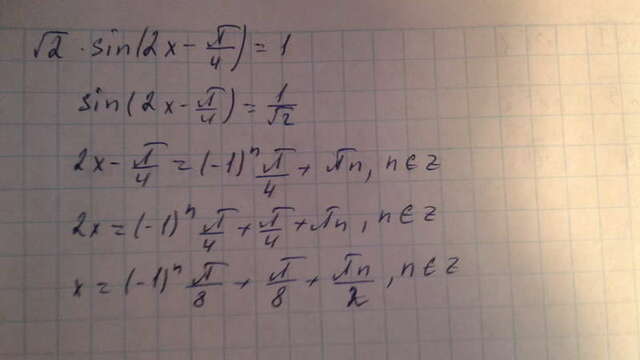 √2 · sin(2x - π/4) = 1
sin(2x - π/4) = 1/√2
2x - π/4 = (-1)^n π/4 + πn, n ∈ z
2x = (-1)^n π/4 + π/4 + πn, n ∈ z
x = (-1)^n π/8 + π/8 + πn/2, n ∈ z